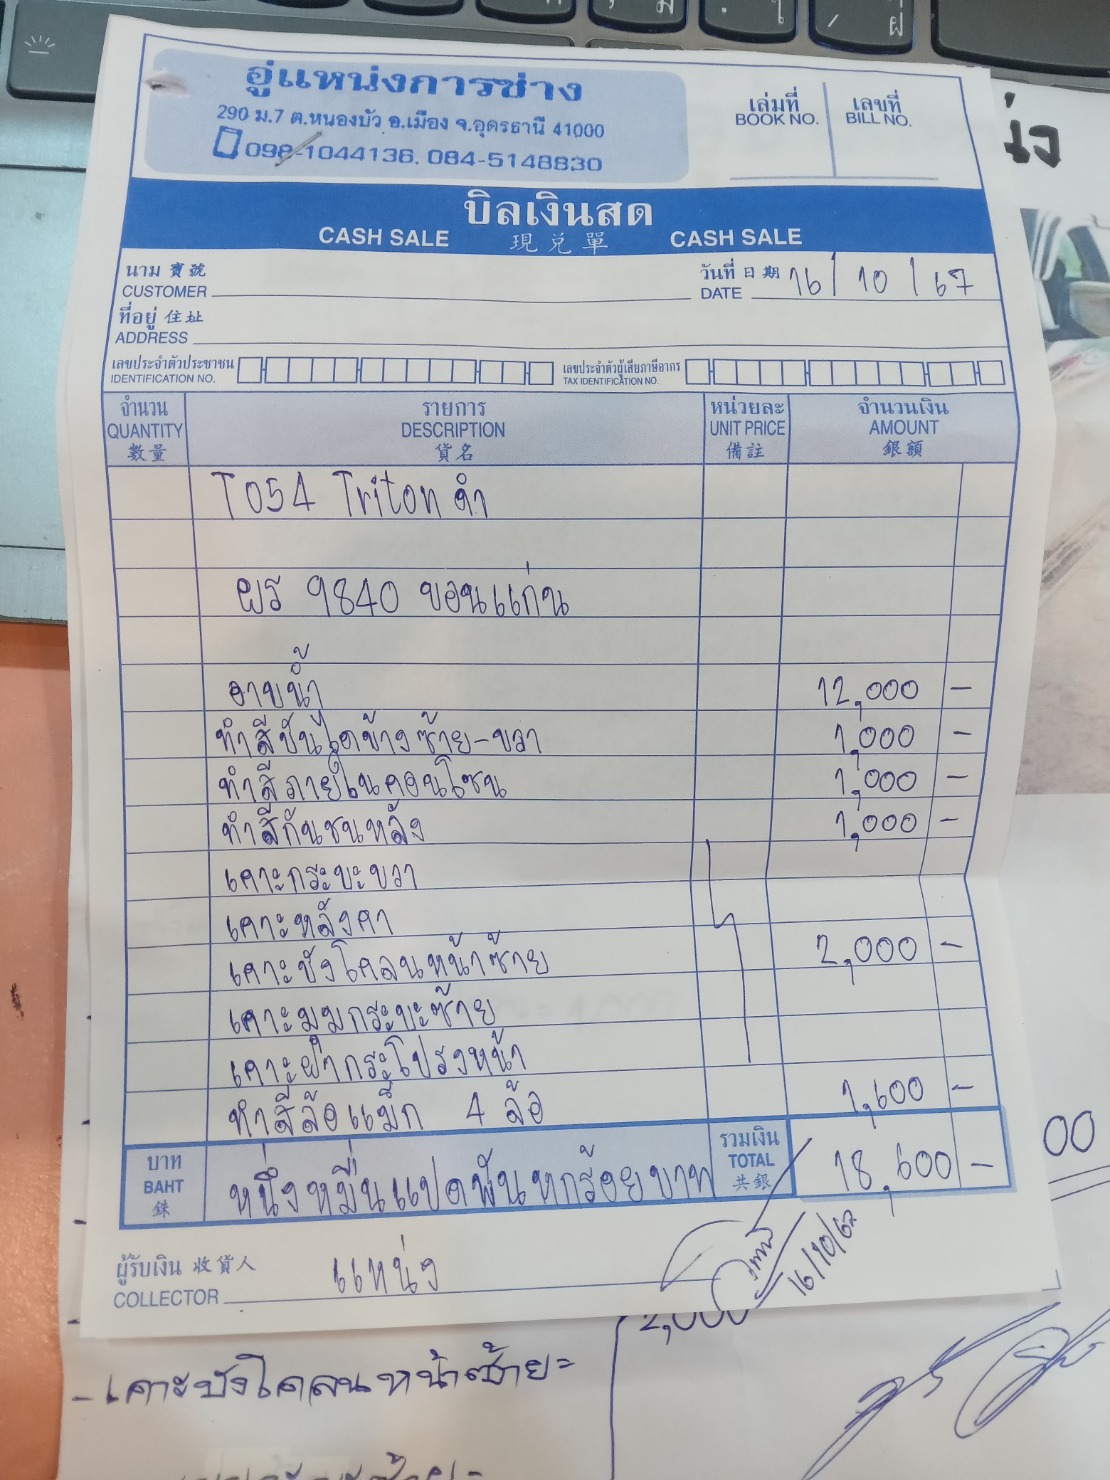 อู่แหน่งการช่าง
290 ม.7 ต.หนองบัว อ.เมือง จ.อุดรธานี 41000
098-1044136, 084-5148830
เล่มที่
BOOK NO.
เลขที่
BILL NO.
บิลเงินสด
CASH SALE 現兑單 CASH SALE
นาม 寶號
CUSTOMER
วันที่ 日期 16/10/67
DATE
ที่อยู่ 住址
ADDRESS
เลขประจำตัวประชาชน
IDENTIFICATION NO.
เลขประจำตัวผู้เสียภาษีอากร
TAX IDENTIFICATION NO.
จำนวน รายการ หน่วยละ จำนวนเงิน
QUANTITY DESCRIPTION UNIT PRICE AMOUNT
數量 貨名 備註 銀額
T054 Triton ดำ
ผร 9840 ขอนแก่น
อาบน้ำ 12,000 -
ทำสีบันไดข้างซ้าย-ขวา 1,000 -
ทำสีภายในคอนโซน 1,000 -
ทำสีกันชนหลัง 1,000 -
เคาะกระบะขวา
เคาะหลังคา
เคาะบังโคลนหน้าซ้าย 2,000 -
เคาะมุมกระบะซ้าย
เคาะฝากระโปรงหน้า
ทำสีล้อแม็ก 4 ล้อ 1,600 -
บาท
BAHT
銖
หนึ่งหมื่นแปดพันหกร้อยบาท
รวมเงิน
TOTAL
共銀
18,600 -
ผู้รับเงิน 收貨人
COLLECTOR
แหน่ง
16/10/67
00
2,000
-เคาะบังโคลนหน้าซ้าย=